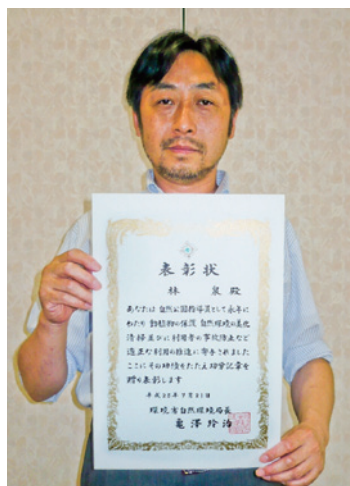 表彰状
林 泉 殿
あなたは自然公園指導員として永年に
わたり動植物の保護 自然環境の美化
清掃並びに利用者の事故防止など
適正な利用の推進に寄与されました
ここにその功績をたたえ紀念記章を
贈り表彰します
平成30年7月31日
環境省自然環境局長
亀澤玲治